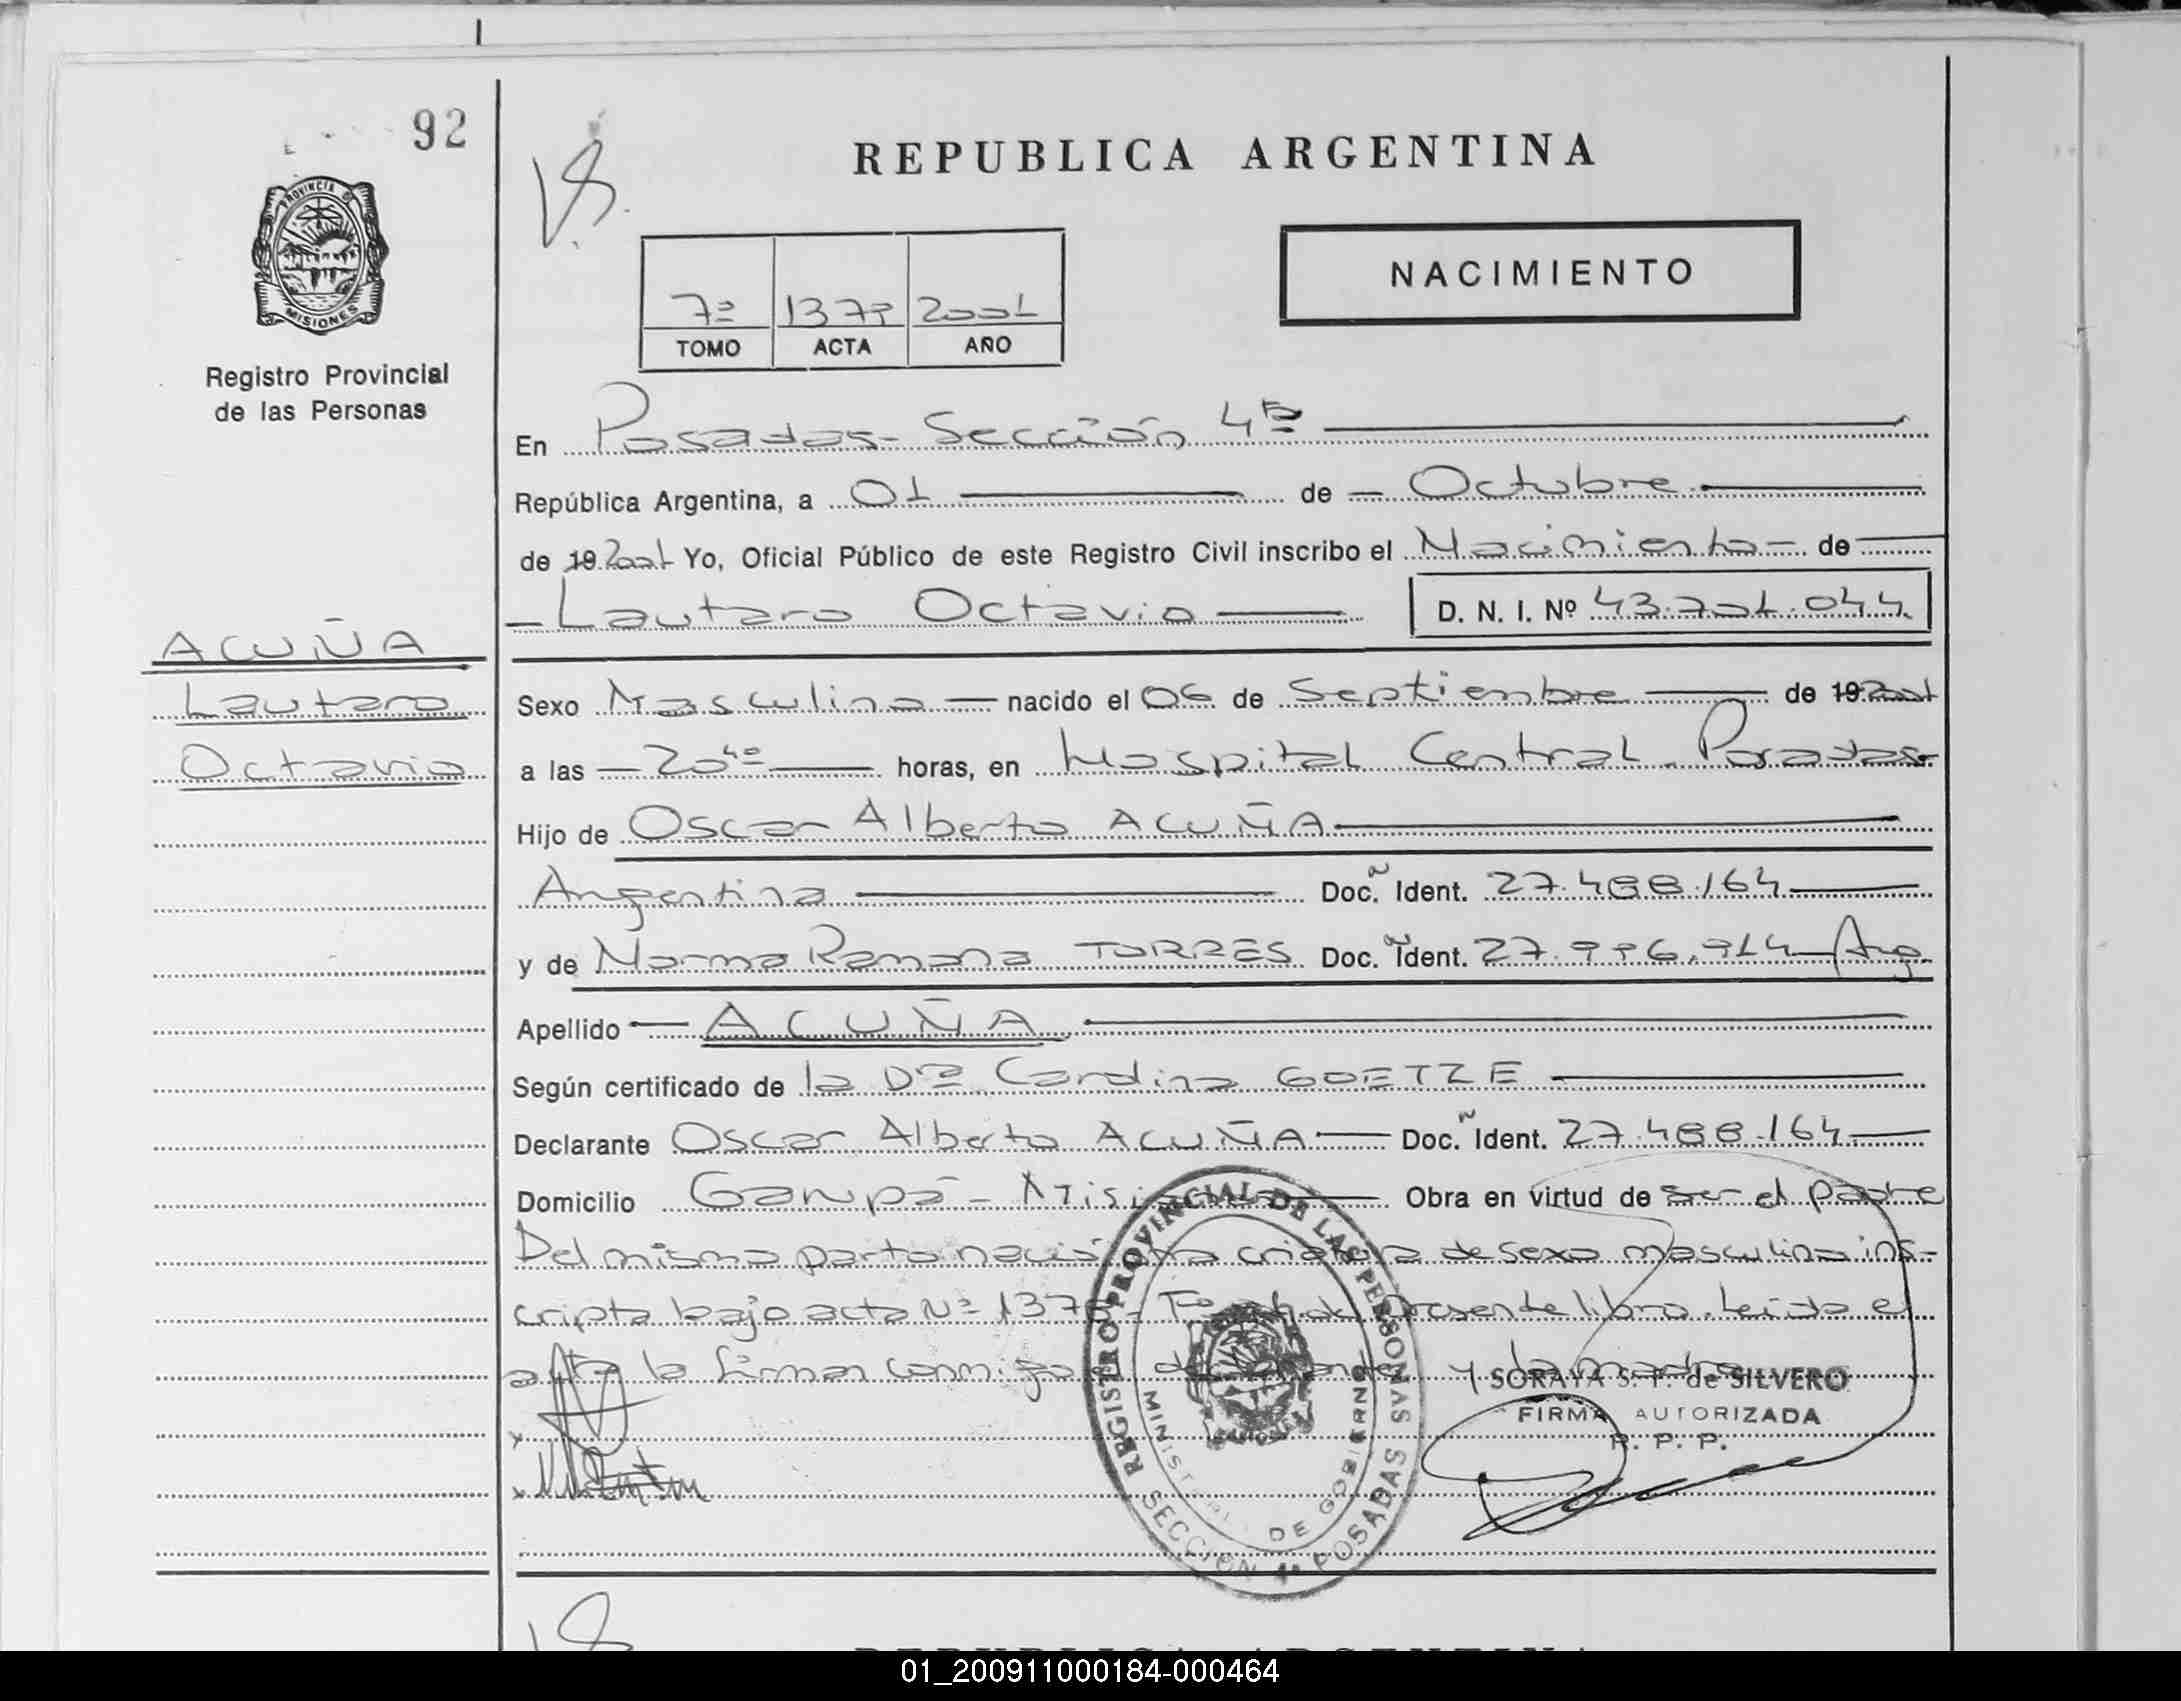 92
PROVINCIA DE
MISIONES
Registro Provincial
de las Personas
ACUÑA
Lautaro
Octavio
REPUBLICA ARGENTINA
NACIMIENTO
7º 1379 2001
TOMO ACTA AÑO
En Posadas - Sección 4ª
República Argentina, a 01 de Octubre
de 19 2001 Yo, Oficial Público de este Registro Civil inscribo el Nacimiento de
Lautaro Octavio D. N. I. Nº 43.701.044
Sexo Masculino nacido el 06 de Septiembre de 19 2001
a las 20⁴⁰ horas, en Hospital Central - Posadas
Hijo de Oscar Alberto ACUÑA
Argentina Doc. Ident. 27.488.164
y de Norma Ramona TORRES Doc. Ident. 27.996.914 Arg.
Apellido ACUÑA
Según certificado de la Drª Carolina GOETZE
Declarante Oscar Alberto ACUÑA Doc. Ident. 27.488.164
Domicilio Garupá - Misiones Obra en virtud de ser el padre
Del mismo parto nació otra criatura de sexo masculino ins-
cripta bajo acta Nº 1378 - Tº 7º del presente libro. Leída el
acta la firman conmigo el declarante y la madre
SORAYA S. F. de SILVERO
FIRMA AUTORIZADA
R. P. P.
REGISTRO PROVINCIAL DE LAS PERSONAS
MINISTERIO DE GOBIERNO
SECCION 4ª POSADAS
REPUBLICA ARGENTINA
01_200911000184-000464